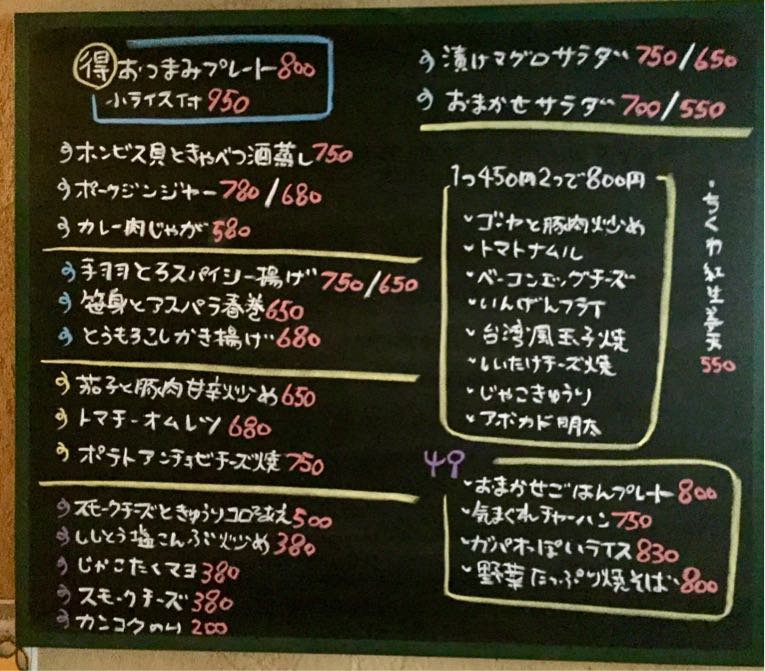 得 おつまみプレート 800
小ライス付 950
ホンビス貝ときゃべつ酒蒸し 750
ポークジンジャー 780/680
カレー肉じゃが 580
手羽とろスパイシー揚げ 750/650
笹身とアスパラ春巻 650
とうもろこしかき揚げ 680
茄子と豚肉甘辛炒め 650
トマチーオムレツ 680
ポテトアンチョビチーズ焼 750
スモークチーズときゅうりコロコロあえ 500
ししとう塩こんぶ炒め 380
じゃこたくマヨ 380
スモークチーズ 380
カンコクのり 200
漬けマグロサラダ 750/650
おまかせサラダ 700/550
1つ450円2つで800円
ゴーヤと豚肉炒め
トマトナムル
ベーコンエッグチーズ
いんげんフライ
台湾風玉子焼
しいたけチーズ焼
じゃこきゅうり
アボカド明太
・ちくわ紅生姜天 550
おまかせごはんプレート 800
気まぐれチャーハン 750
ガパオっぽいライス 830
野菜たっぷり焼そば 800